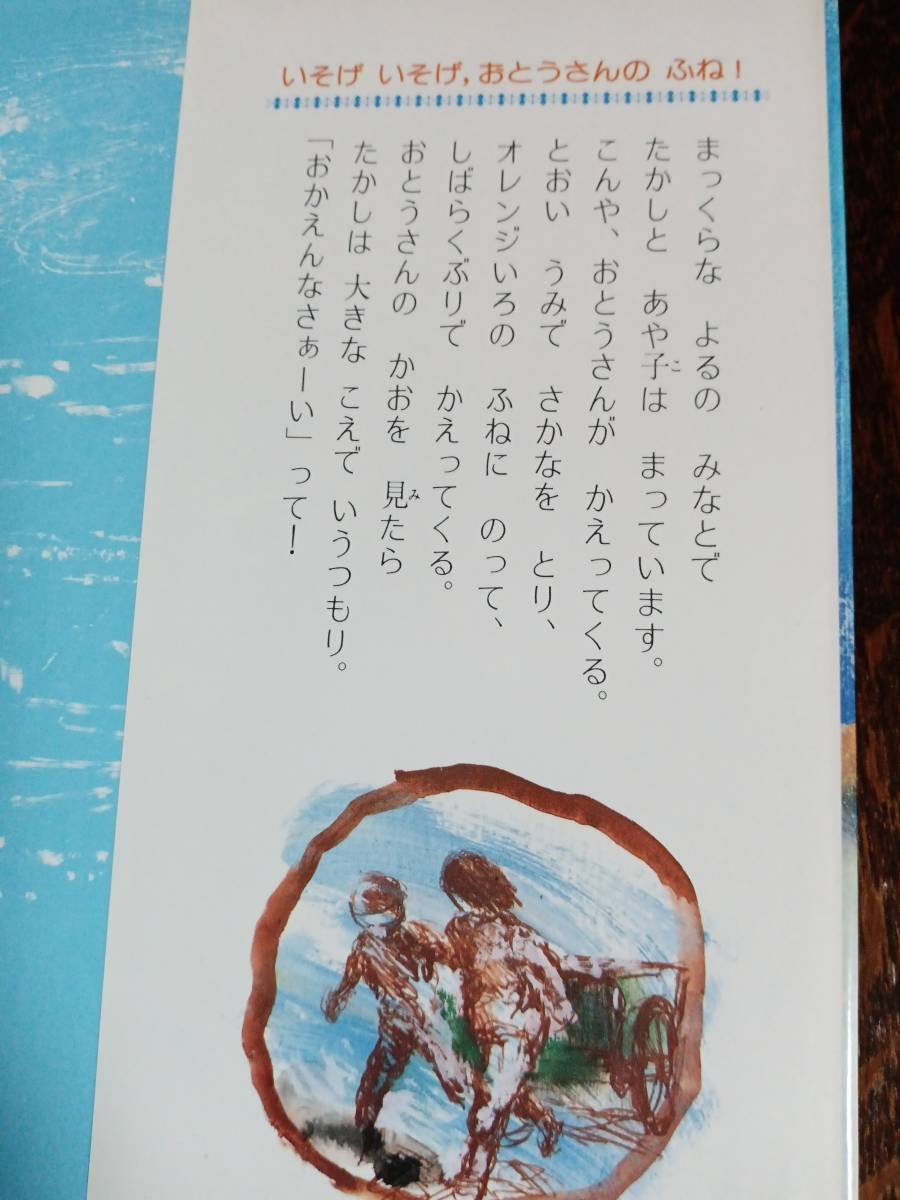 いそげ いそげ,おとうさんの ふね!
まっくらな よるの みなとで
たかしと あや子は まっています。
こんや、おとうさんが かえってくる。
とおい うみで さかなを とり、
オレンジいろの ふねに のって、
しばらくぶりで かえってくる。
おとうさんの かおを 見たら
たかしは 大きな こえで いうつもり。
「おかえんなさぁーい」って!